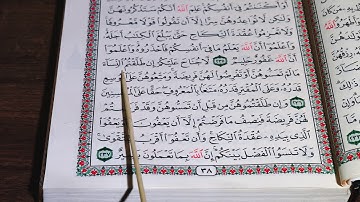 أَوْ أَكْنَنتُمْ فِىٓ أَنفُسِكُمْ عَلِمَ ٱللَّهُ أَنَّكُمْ سَتَذْكُرُونَهُنَّ
وَلَٰكِن لَّا تُوَاعِدُوهُنَّ سِرًّا إِلَّآ أَن تَقُولُوا۟ قَوْلًا مَّعْرُوفًا
وَلَا تَعْزِمُوا۟ عُقْدَةَ ٱلنِّكَاحِ حَتَّىٰ يَبْلُغَ ٱلْكِتَٰبُ أَجَلَهُۥ
وَٱعْلَمُوٓا۟ أَنَّ ٱللَّهَ يَعْلَمُ مَا فِىٓ أَنفُسِكُمْ فَٱحْذَرُوهُ وَٱعْلَمُوٓا۟
أَنَّ ٱللَّهَ غَفُورٌ حَلِيمٌ ٢٣٥ لَّا جُنَاحَ عَلَيْكُمْ إِن طَلَّقْتُمُ ٱلنِّسَآءَ
مَا لَمْ تَمَسُّوهُنَّ أَوْ تَفْرِضُوا۟ لَهُنَّ فَرِيضَةً وَمَتِّعُوهُنَّ عَلَى ٱلْمُوسِعِ
قَدَرُهُۥ وَعَلَى ٱلْمُقْتِرِ قَدَرُهُۥ مَتَٰعًۢا بِٱلْمَعْرُوفِ حَقًّا عَلَى ٱلْمُحْسِنِينَ
٢٣٦ وَإِن طَلَّقْتُمُوهُنَّ مِن قَبْلِ أَن تَمَسُّوهُنَّ وَقَدْ فَرَضْتُمْ
لَهُنَّ فَرِيضَةً فَنِصْفُ مَا فَرَضْتُمْ إِلَّآ أَن يَعْفُونَ أَوْ يَعْفُوَا۟
ٱلَّذِى بِيَدِهِۦ عُقْدَةُ ٱلنِّكَاحِ وَأَن تَعْفُوٓا۟ أَقْرَبُ لِلتَّقْوَىٰ
وَلَا تَنسَوُا۟ ٱلْفَضْلَ بَيْنَكُمْ إِنَّ ٱللَّهَ بِمَا تَعْمَلُونَ بَصِيرٌ ٢٣٧
٣٨